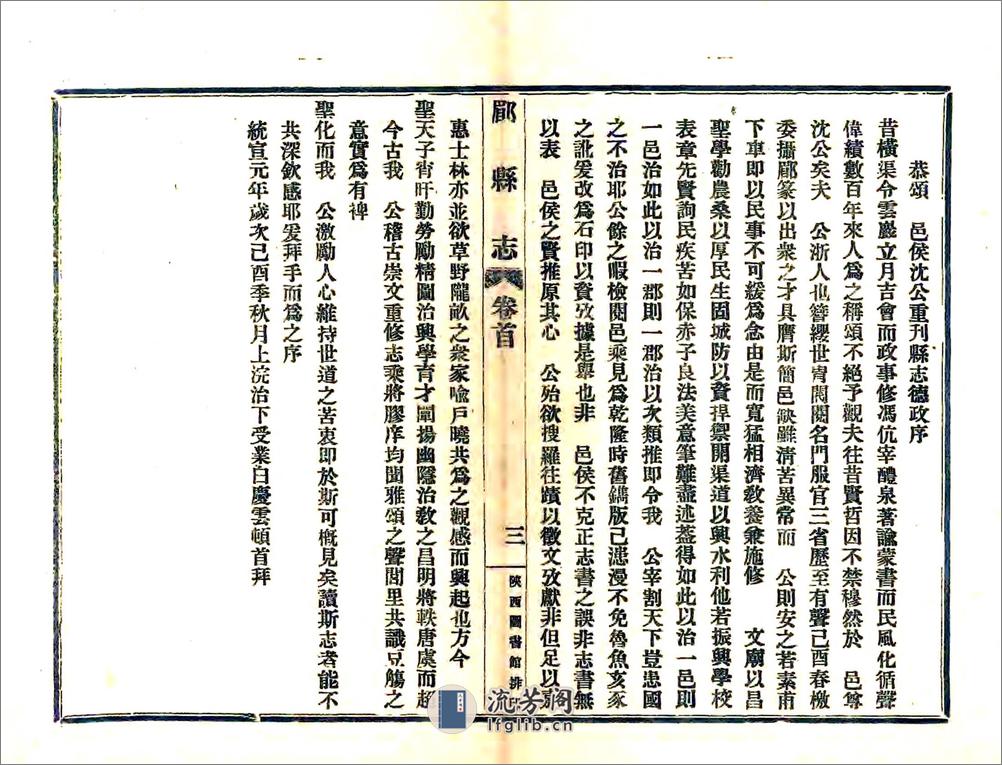 恭頌　邑侯沈公重刊縣志德政序
昔橫渠令雲巖立月吉會而政事修馮伉宰醴泉著諭蒙書而民風化循聲
偉績數百年來人爲之稱頌不絕予觀夫往昔賢哲因不禁穆然於　邑尊
沈公矣夫　公浙人也簪纓世胄閥閱名門服官三省歷至有聲己酉春檄
委攝郿篆以出衆之才具膺斯簡邑缺雖清苦異常而　公則安之若素甫
下車即以民事不可緩爲念由是而寬猛相濟敎養兼施修　文廟以昌
聖學勸農桑以厚民生固城防以資捍禦開渠道以興水利他若振興學校
表章先賢詢民疾苦如保赤子良法美意筆難盡述蓋得如此以治一邑則
一邑治如此以治一郡則一郡治以次類推即令我　公宰割天下豈患國
之不治耶公餘之暇檢閱邑乘見爲乾隆時舊鐫版已漶漫不免魯魚亥豕
之訛爰改爲石印以資攷據是舉也非　邑侯不克正志書之誤非志書無
以表　邑侯之賢推原其心　公殆欲搜羅往蹟以徵文攷獻非但足以
郿縣志　卷首　三　陝西圖書館排
惠士林亦並欲草野隴畝之衆家喩戶曉共爲之觀感而興起也方今
聖天子宵旰勤勞勵精圖治興學育才闡揚幽隱治敎之昌明將軼唐虞而超
今古我　公稽古崇文重修志乘將膠庠均聞雅頌之聲閭里共識豆觴之
意實爲有裨
聖化而我　公激勵人心維持世道之苦衷即於斯可概見矣讀斯志者能不
共深欽感耶爰拜手而爲之序
統宣元年歲次己酉季秋月上浣治下受業白慶雲頓首拜
流芳閣
lfglib.cn